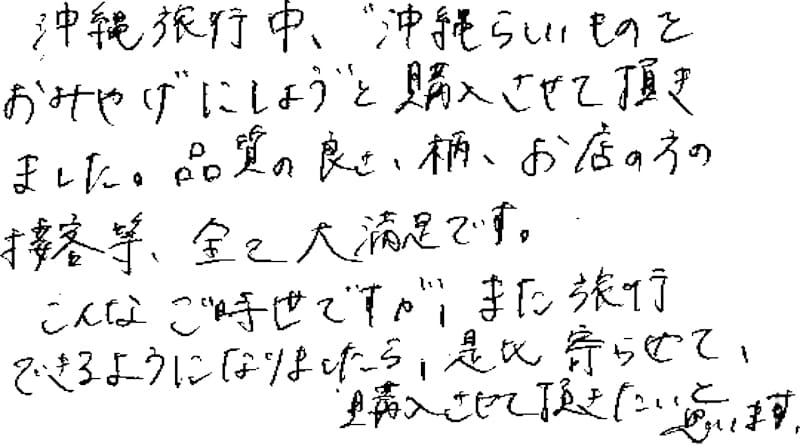 沖縄旅行中、"沖縄らしいものを
おみやげにしよう"と購入させて頂き
ました。品質の良さ、柄、お店の方の
接客等、全て大満足です。
こんなご時世ですが、また旅行
できるようになりましたら、是比寄らせて、
購入させて頂きたいと思います。